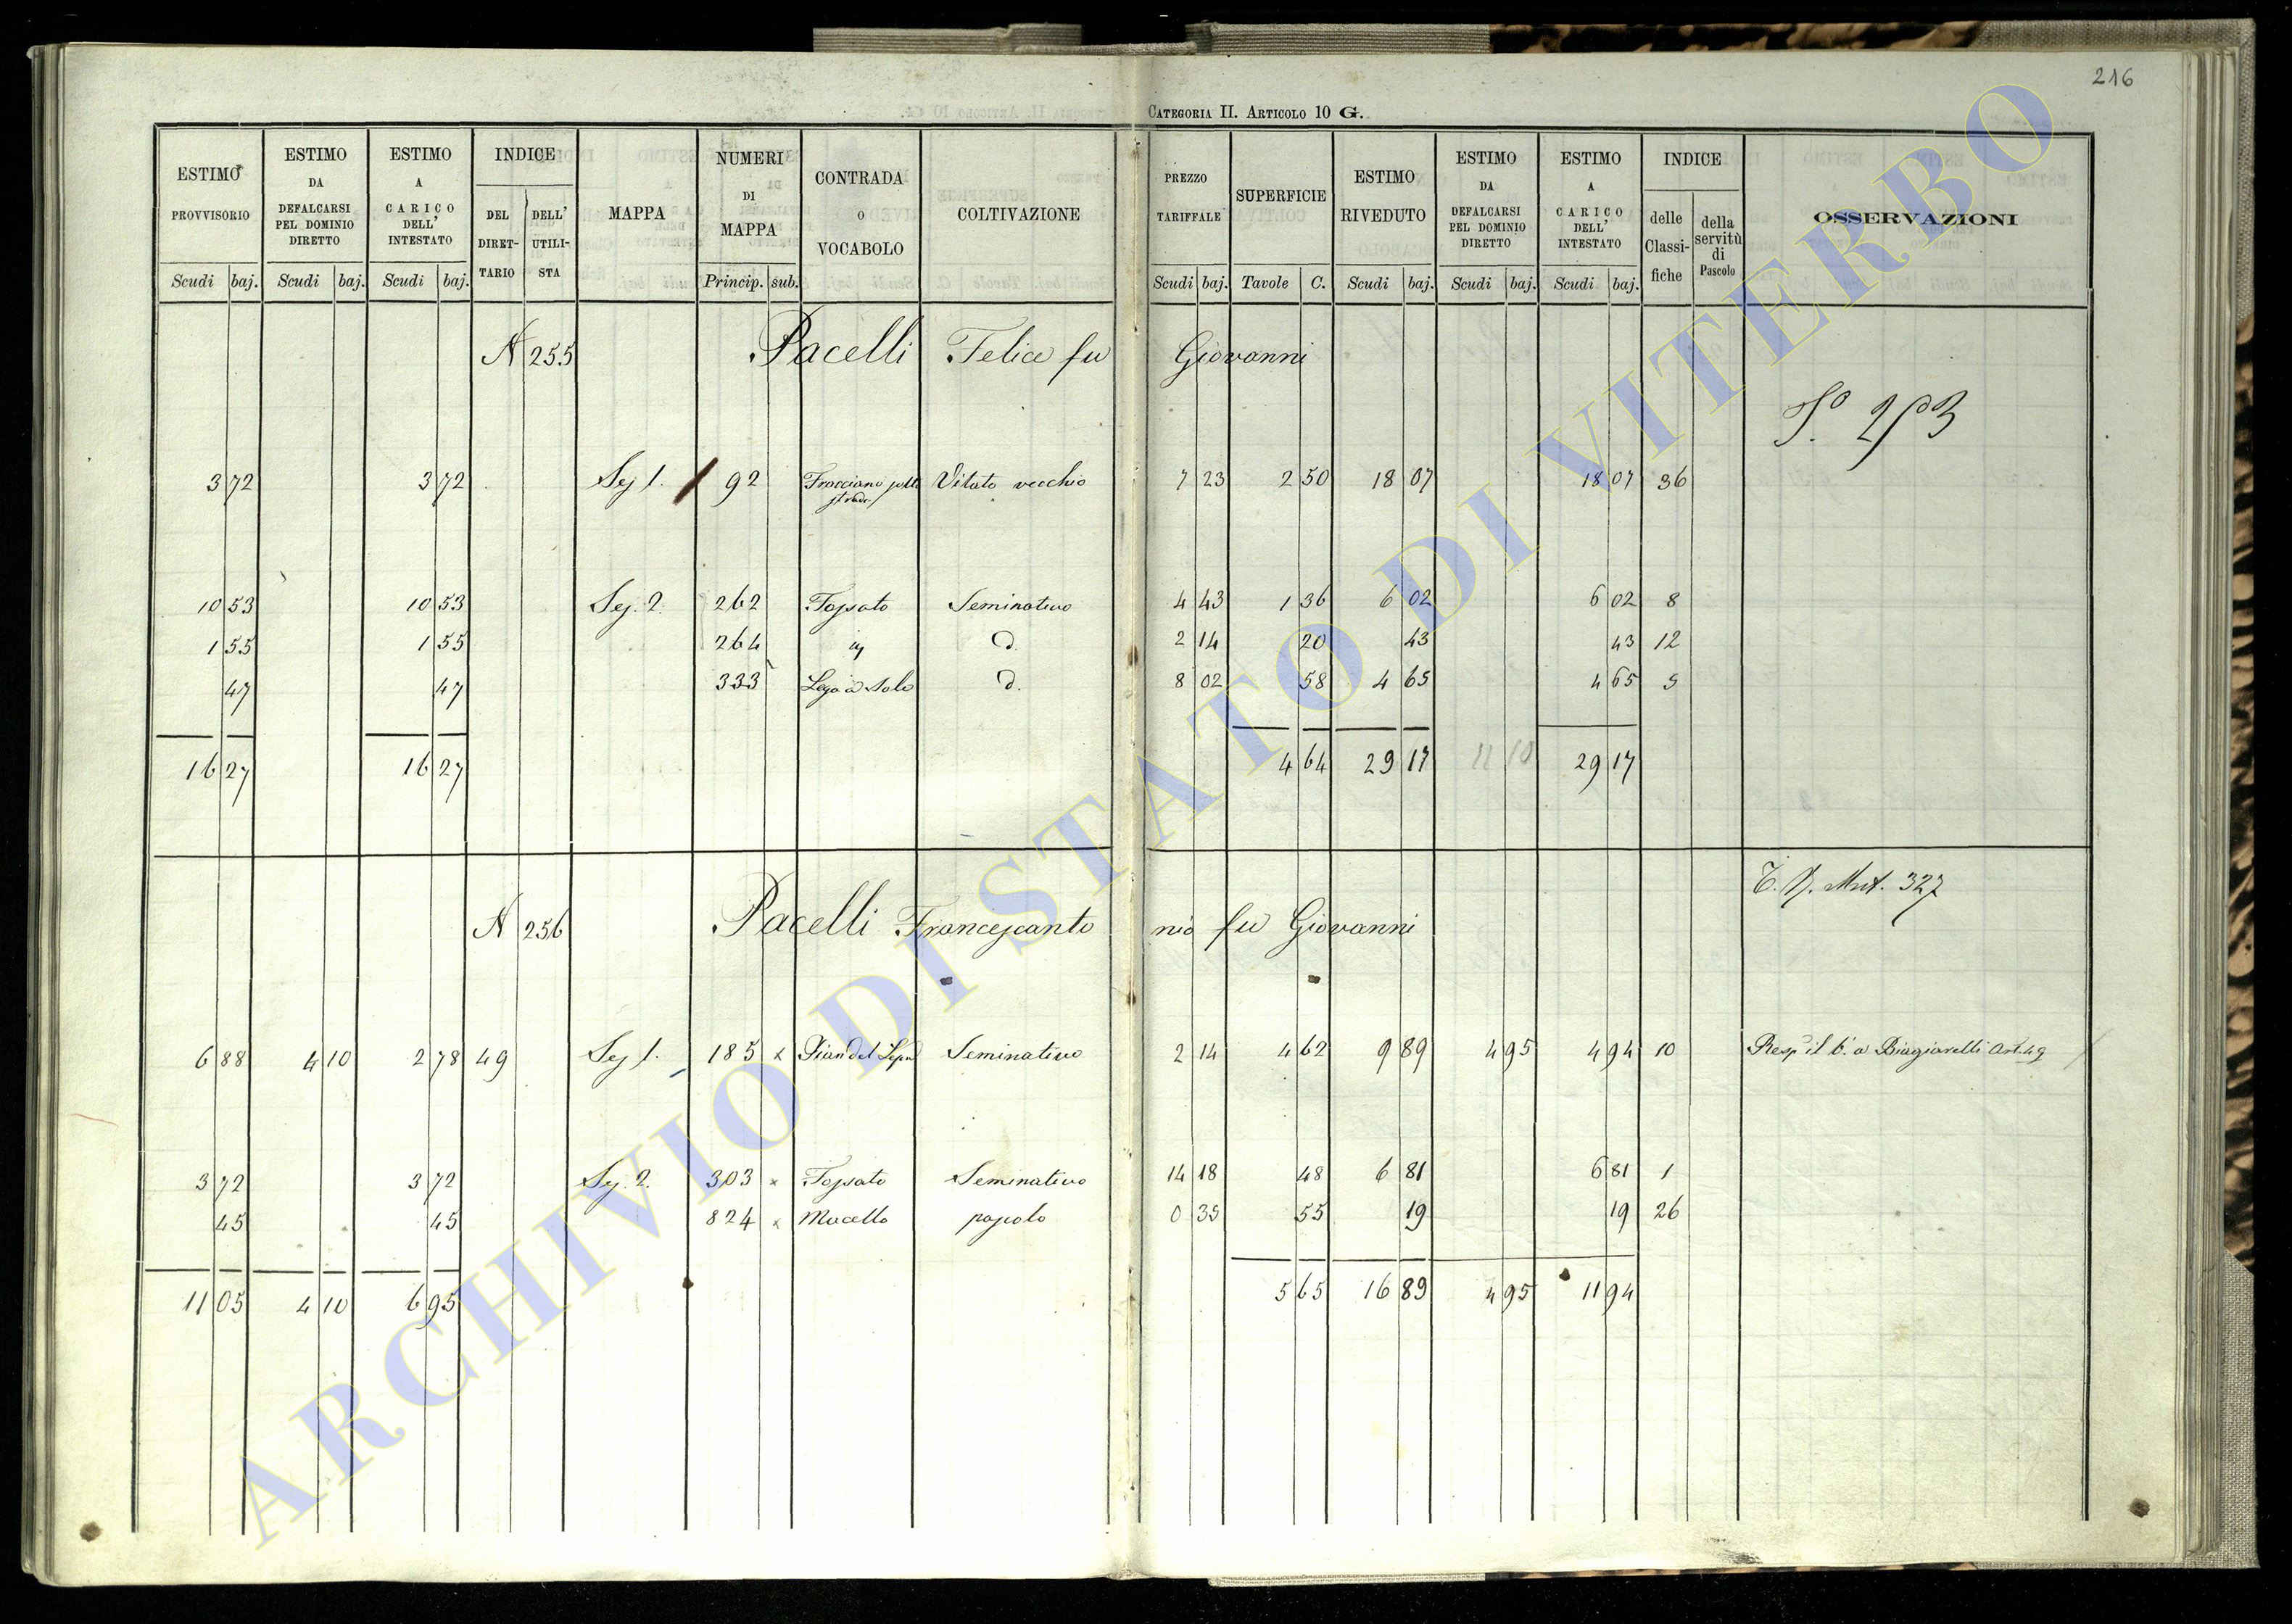 216
CATEGORIA II. ARTICOLO 10 G.
ESTIMO PROVVISORIO Scudi baj.
ESTIMO DA DEFALCARSI PEL DOMINIO DIRETTO Scudi baj.
ESTIMO A CARICO DELL' INTESTATO Scudi baj.
INDICE DEL DIRETTARIO DELL' UTILISTA
MAPPA
NUMERI DI MAPPA Princip. sub.
CONTRADA O VOCABOLO
COLTIVAZIONE
PREZZO TARIFFALE Scudi baj.
SUPERFICIE Tavole C.
ESTIMO RIVEDUTO Scudi baj.
ESTIMO DA DEFALCARSI PEL DOMINIO DIRETTO Scudi baj.
ESTIMO A CARICO DELL' INTESTATO Scudi baj.
INDICE delle Classifiche della servitù di Pascolo
OSSERVAZIONI
N 255 Pacelli Felice fu Giovanni
3 72 3 72 Sez 1. 92 Vitato vecchio 7 23 2 50 18 07 18 07 36
10 53 10 53 Sez. 2. 262 Fossato Seminativo 4 43 1 36 6 02 6 02 8
1 55 1 55 264 d. 2 14 20 43 43 12
47 47 333 d. 8 02 58 4 65 4 65 5
16 27 16 27 4 64 29 17 11 10 29 17
Mut. 327
N 256 Pacelli Francescantonio fu Giovanni
6 88 4 10 2 78 49 Sez 1. 185 x Pian del Seminativo 2 14 4 62 9 89 4 95 4 94 10 Resp il b. a Biagiarelli Art. 49
3 72 3 72 Sez. 2. 303 x Fossato Seminativo 14 18 48 6 81 6 81 1
45 45 824 x Macello pascolo 0 35 55 19 19 26
11 05 4 10 6 95 5 65 16 89 4 95 11 94
ARCHIVIO DI STATO DI VITERBO